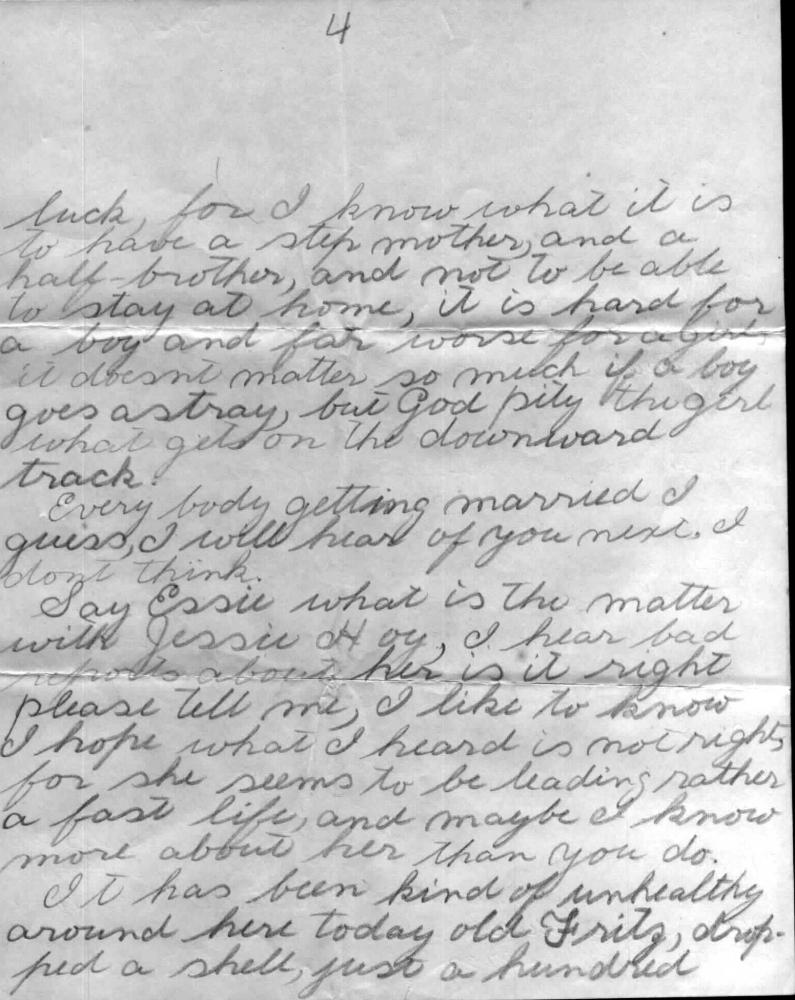 4
luck, for I know what it is
to have a step mother, and a
half-brother, and not to be able
to stay at home, it is hard for
a boy and far worse for a girl,
it doesnt matter so much if a boy
goes astray, but God pity the girl
what gets on the downward
track.
Every body getting married I
guess, I will hear of you next. I
dont think.
Say Essie what is the matter
with Jessie Hoy, I hear bad
reports about her is it right
please tell me, I like to know
I hope what I heard is not right,
for she seems to be leading rather
a fast life, and maybe I know
more about her than you do.
It has been kind of unhealthy
around here today old Fritz, drop-
ped a shell, just a hundred